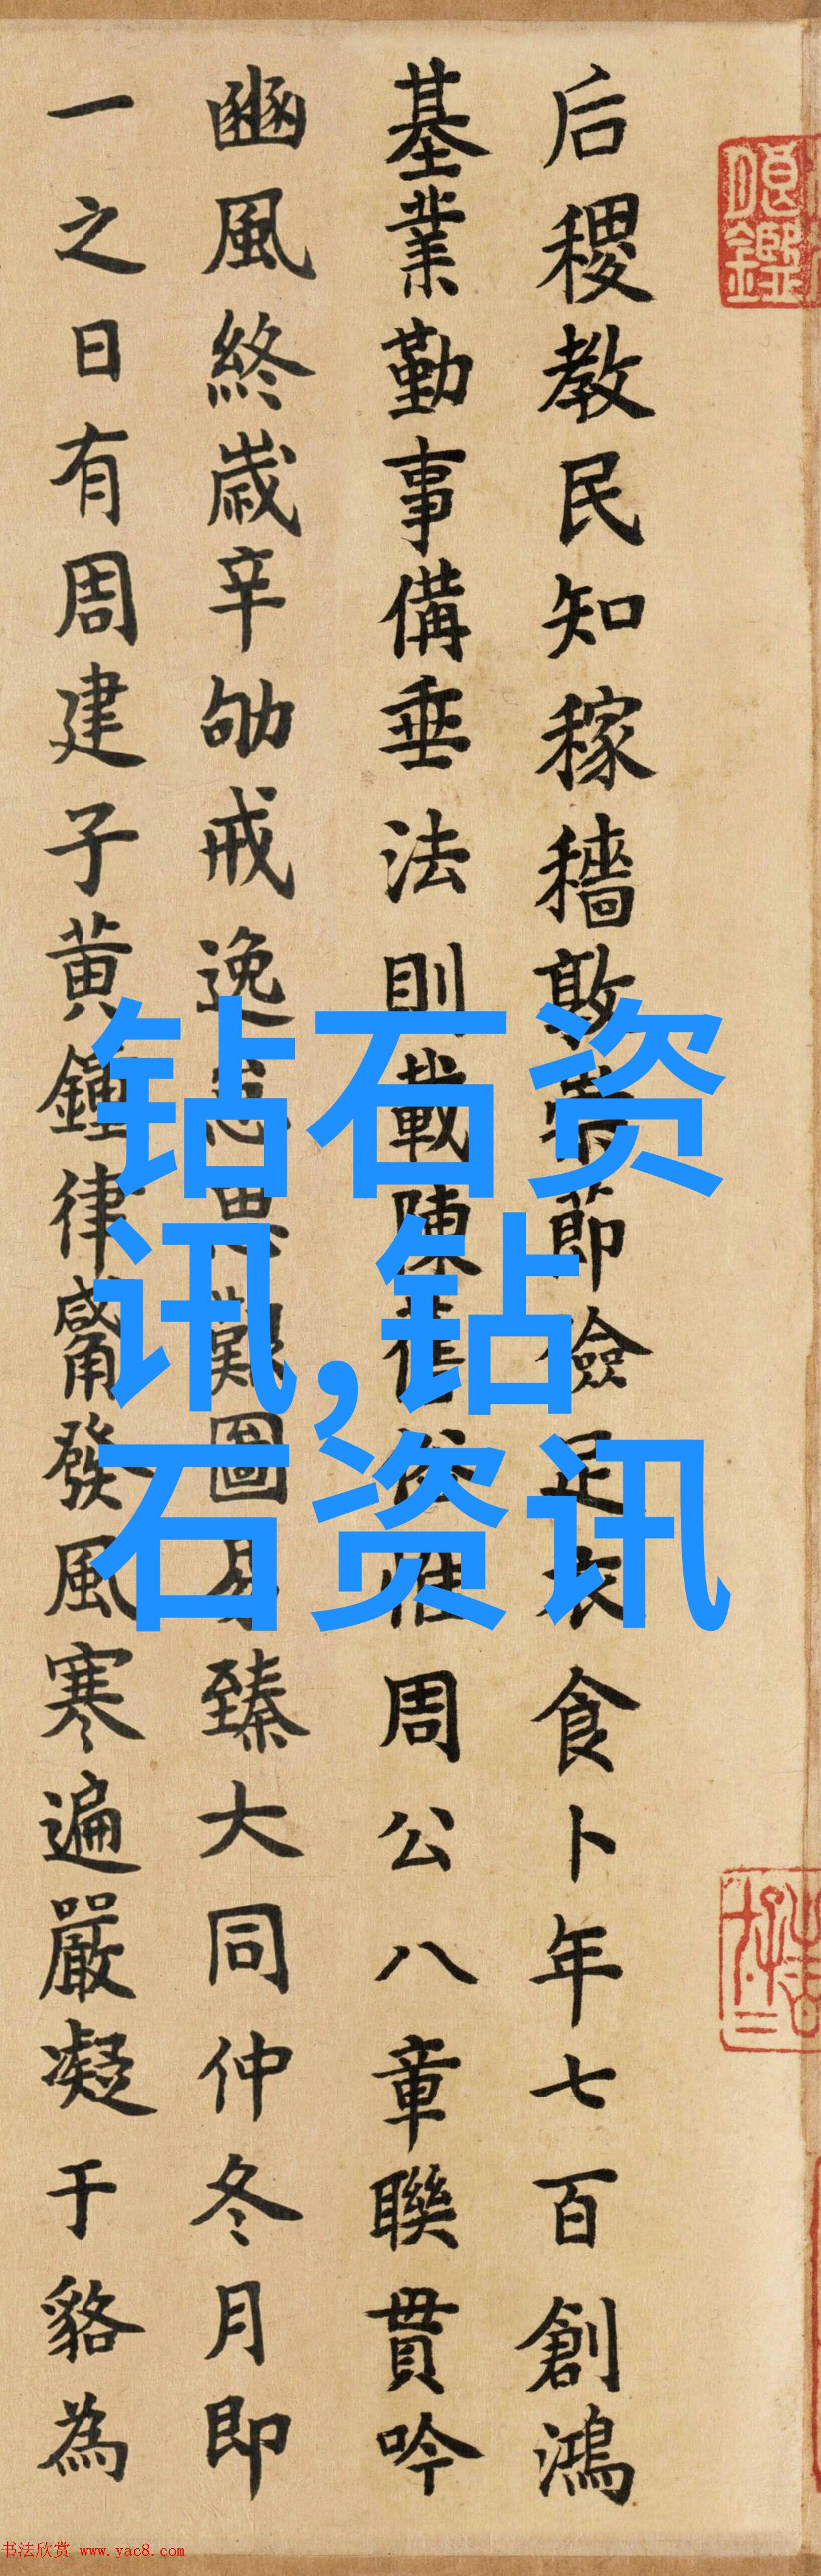 后稷教民知稼穡敦節儉足衣食卜年七百創鴻
基業勤事備垂法則載陳惟周公八章聯貫吟
豳風終歲辛劬戒逸難圖臻大同仲冬月即
一之日有周建子黃鍾律觱發風寒遍嚴凝于貉為
钻石资
讯,钻
石资讯
书法欣赏 www.yac8.com